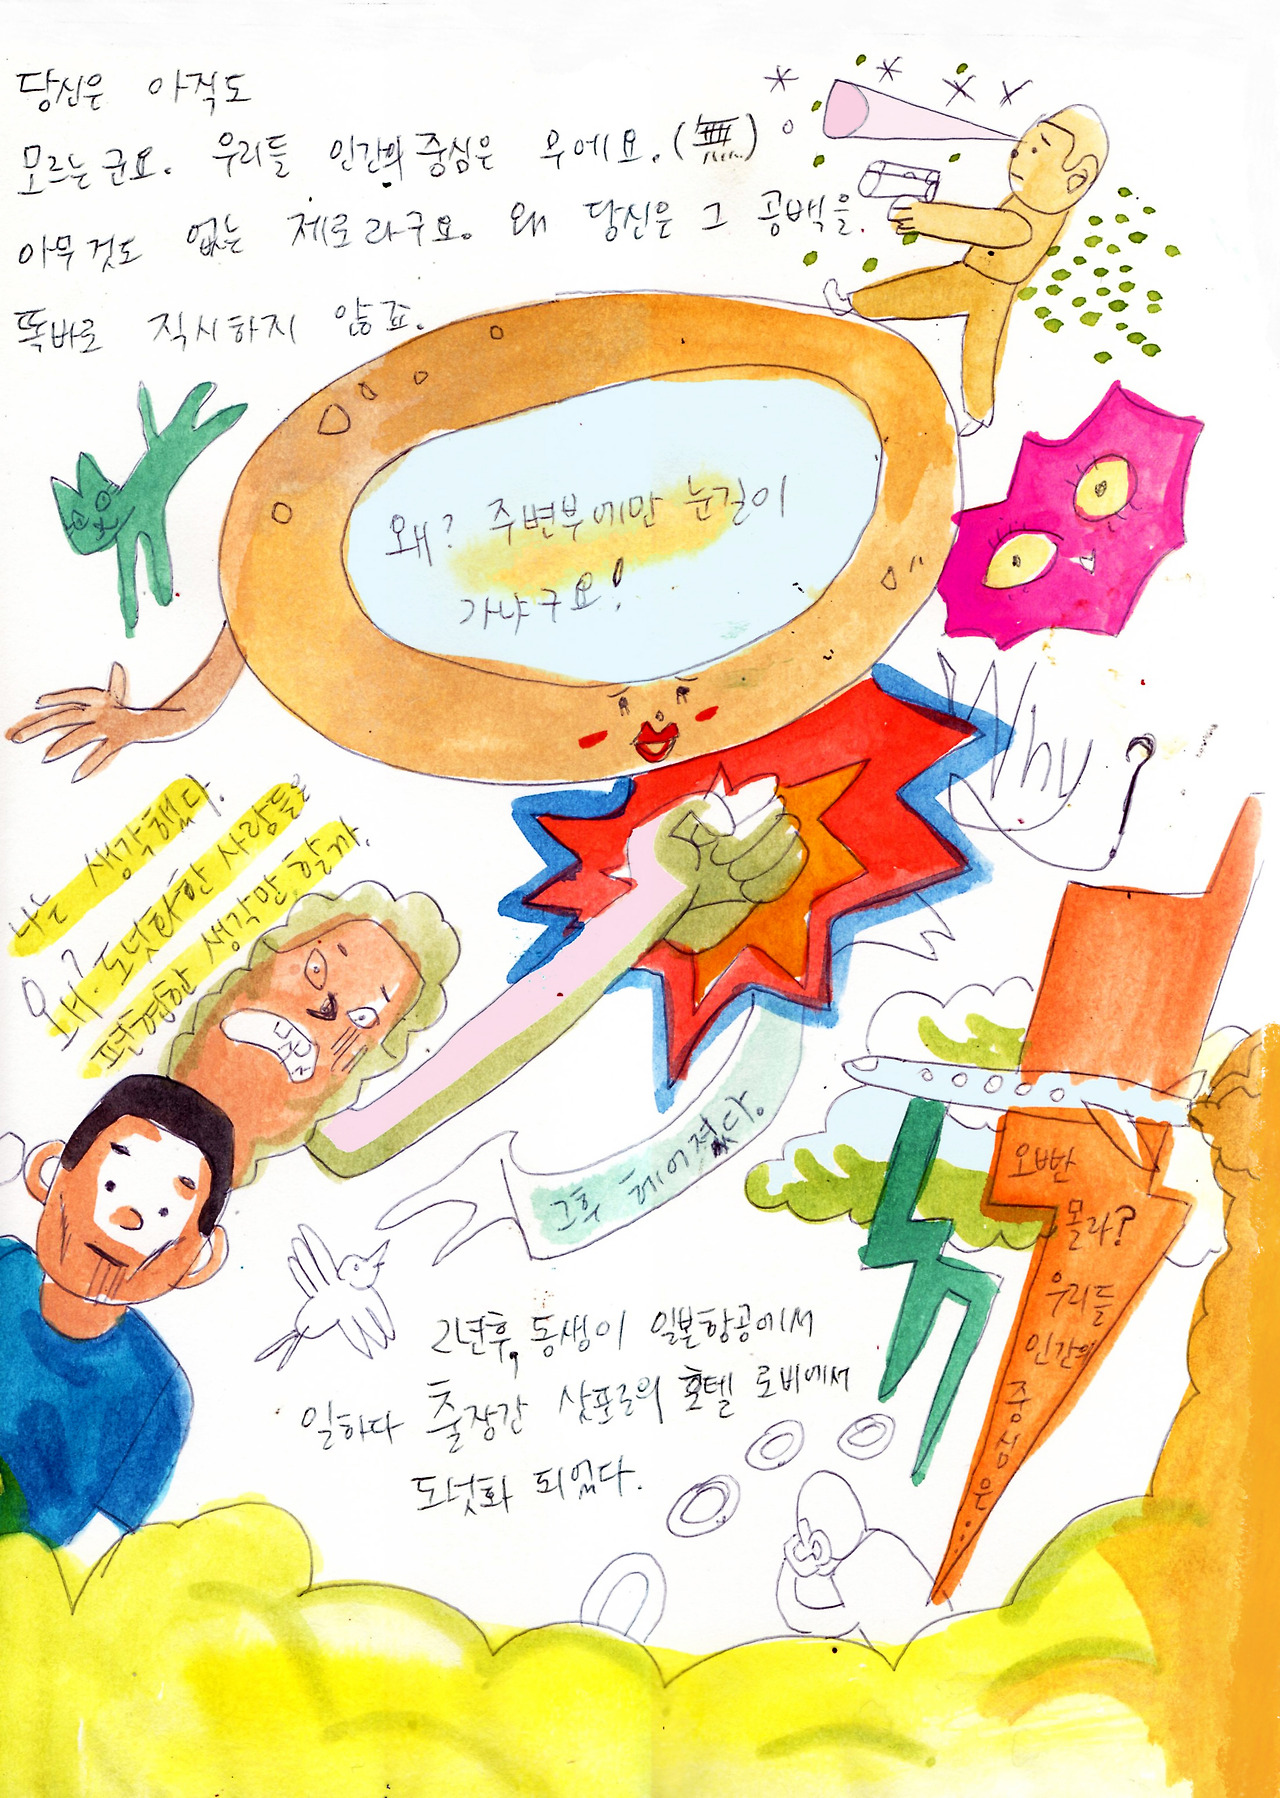 당신은 아직도
모르는군요. 우리들 인간의 중심은 무예요. (無)
아무것도 없는 제로라구요. 왜 당신은 그 공백을
똑바로 직시하지 않죠.
왜? 주변부에만 눈길이
가냐구요!
Why
나는 생각했다.
왜? 도넛화한 사람들은
편협한 생각만 할까.
그후 헤어졌다.
오빤
몰라?
우리들
인간의
중심은...
2년후, 동생이 일본항공에서
일하다 출장간 삿포로의 호텔 로비에서
도넛화 되었다.